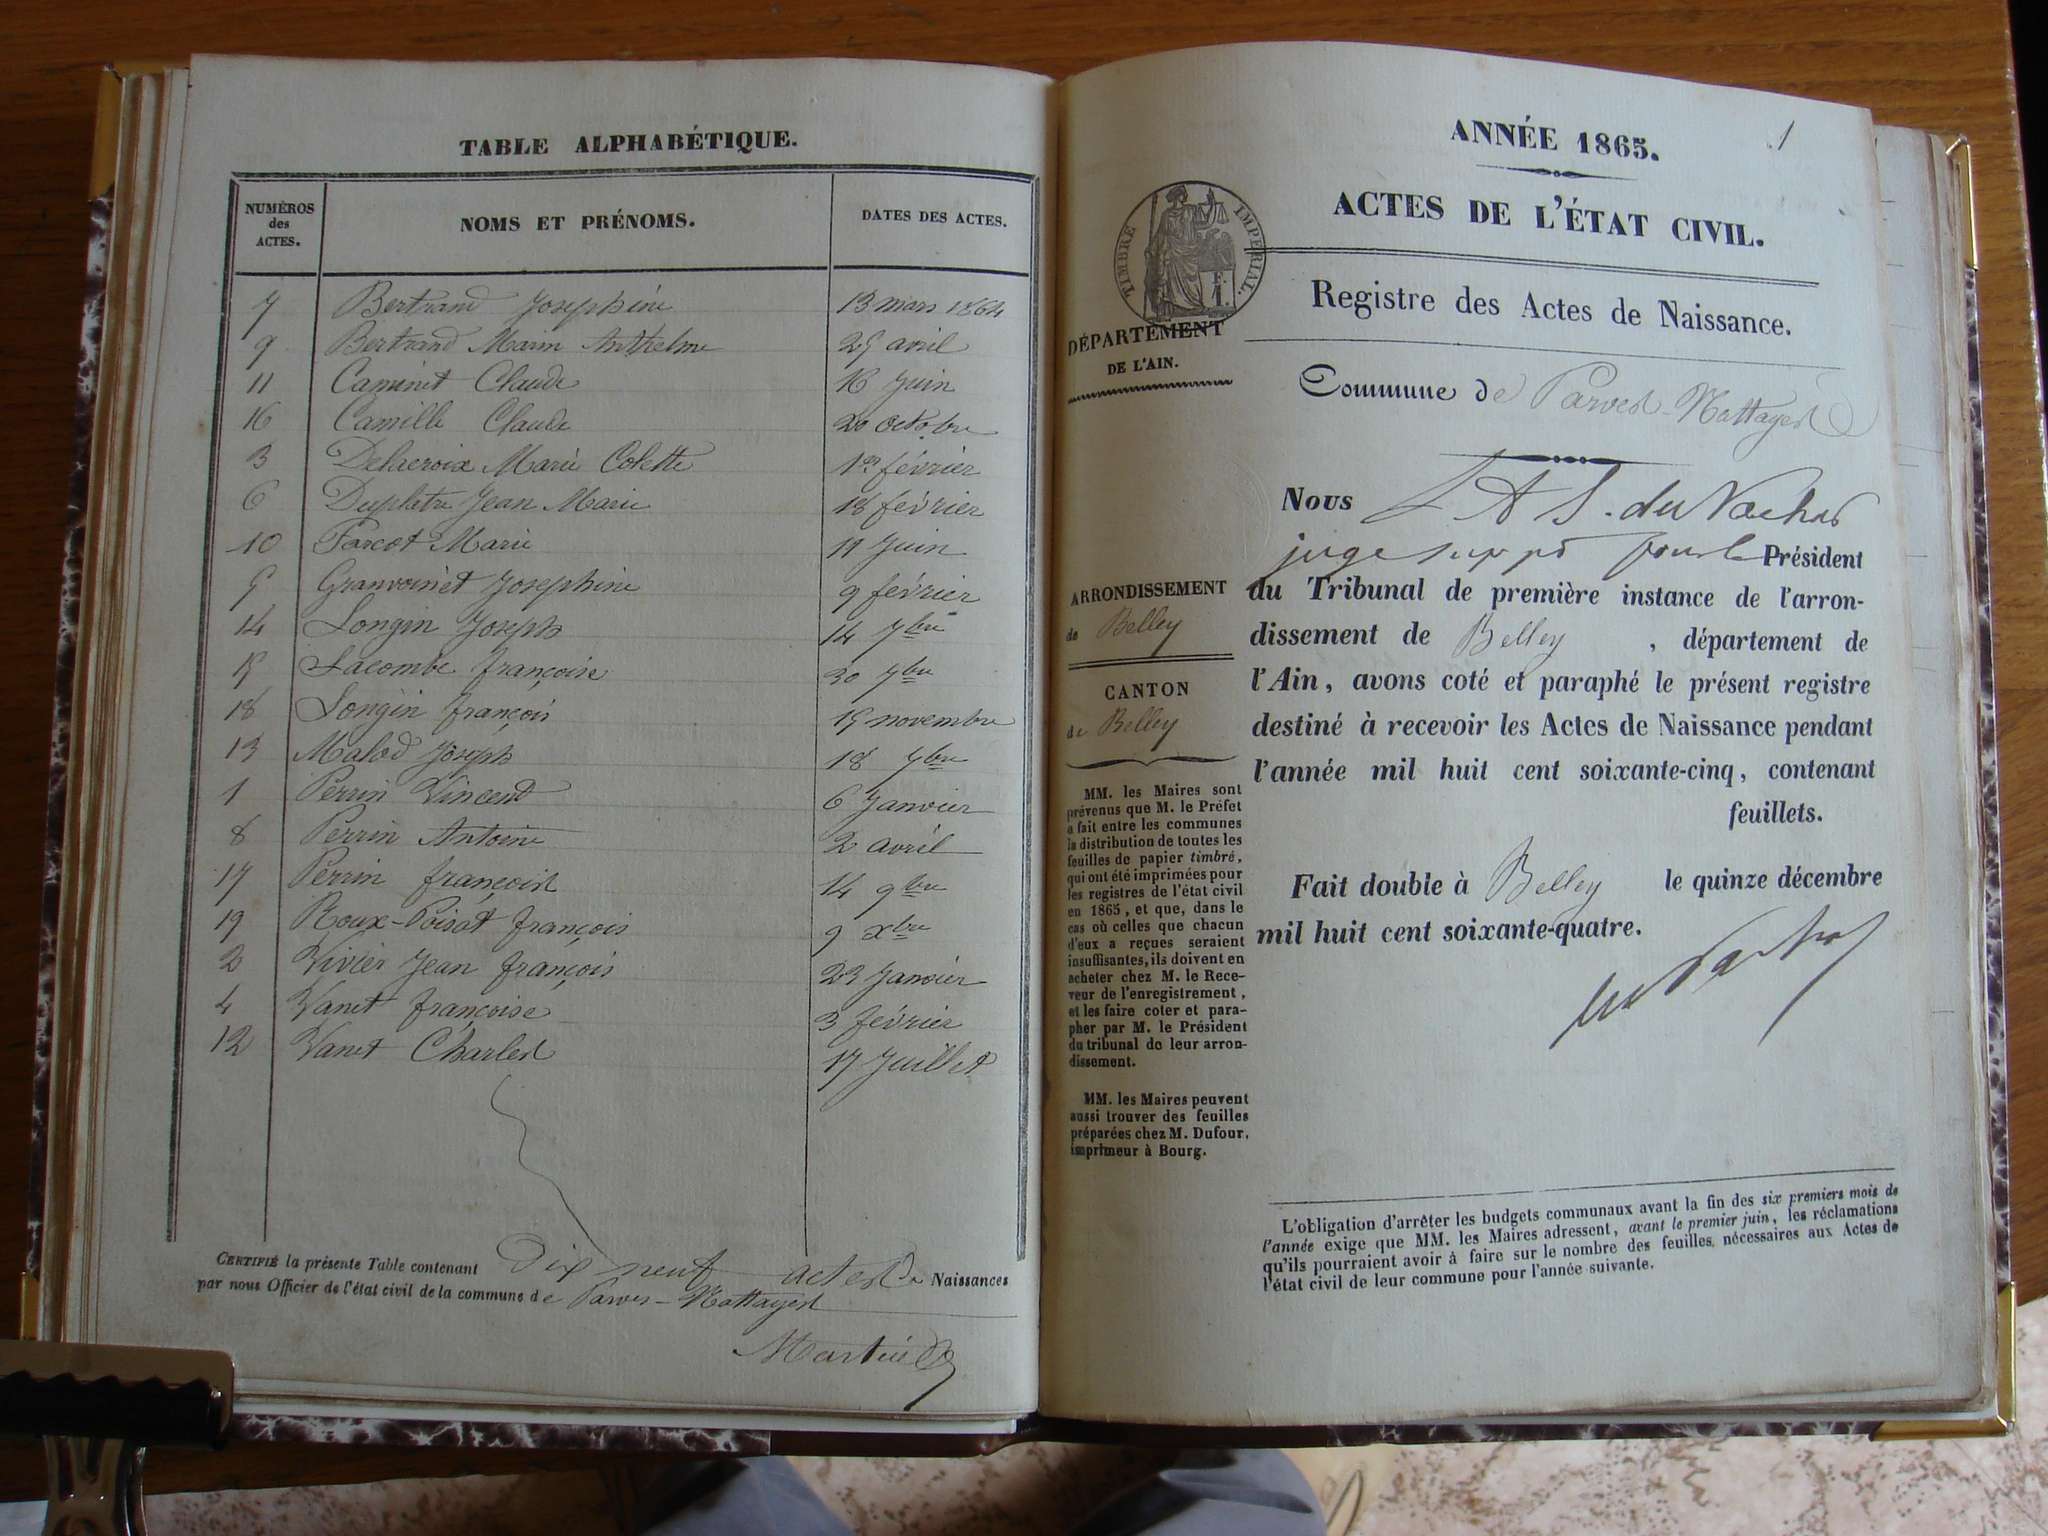 TABLE ALPHABÉTIQUE.
NUMÉROS des ACTES. NOMS ET PRÉNOMS. DATES DES ACTES.
7 Bertrand Joséphine 13 mars 1864
9 Bertrand Marin Anthelme 25 avril
11 Caminet Claude 16 Juin
16 Camille Claude 20 octobre
3 Delacroix Marie Colette 1er février
6 Duplatre Jean Marie 18 février
10 Farcot Marie 11 Juin
5 Granvoinet Josephine 9 février
14 Longin Joseph 14 7bre
15 Lacombe françoise 30 7bre
18 Longin françois 15 novembre
13 Malod Joseph 18 7bre
1 Perrin Vincend 6 Janvier
8 Perrin Antoine 2 avril
17 Perrin françois 14 9bre
19 Roux-Poisat françois 9 xbre
2 Vivier Jean françois 23 Janvier
4 Vanet françoise 3 février
12 Vanet Charles 17 Juillet
CERTIFIÉ la présente Table contenant Dix neuf actes De Naissances
par nous Officier de l'état civil de la commune de Parves-Nattages
ANNÉE 1865.
1
ACTES DE L'ÉTAT CIVIL.
TIMBRE IMPÉRIAL.
F. 1.
Registre des Actes de Naissance.
DÉPARTEMENT
DE L'AIN.
Commune de Parves-Nattages
Nous
juge supp pour le Président
ARRONDISSEMENT
de Belley
CANTON
de Belley
du Tribunal de première instance de l'arron-
dissement de Belley, département de
l'Ain, avons coté et paraphé le présent registre
destiné à recevoir les Actes de Naissance pendant
l'année mil huit cent soixante-cinq, contenant
feuillets.
Fait double à Belley le quinze décembre
mil huit cent soixante-quatre.
MM. les Maires sont
prévenus que M. le Préfet
a fait entre les communes
la distribution de toutes les
feuilles de papier timbré,
qui ont été imprimées pour
les registres de l'état civil
en 1865, et que, dans le
cas où celles que chacun
d'eux a reçues seraient
insuffisantes, ils doivent en
acheter chez M. le Rece-
veur de l'enregistrement,
et les faire coter et para-
pher par M. le Président
du tribunal de leur arron-
dissement.
MM. les Maires peuvent
aussi trouver des feuilles
préparées chez M. Dufour,
imprimeur à Bourg.
L'obligation d'arrêter les budgets communaux avant la fin des six premiers mois de
l'année exige que MM. les Maires adressent, avant le premier juin, les réclamations
qu'ils pourraient avoir à faire sur le nombre des feuilles, nécessaires aux Actes de
l'état civil de leur commune pour l'année suivante.